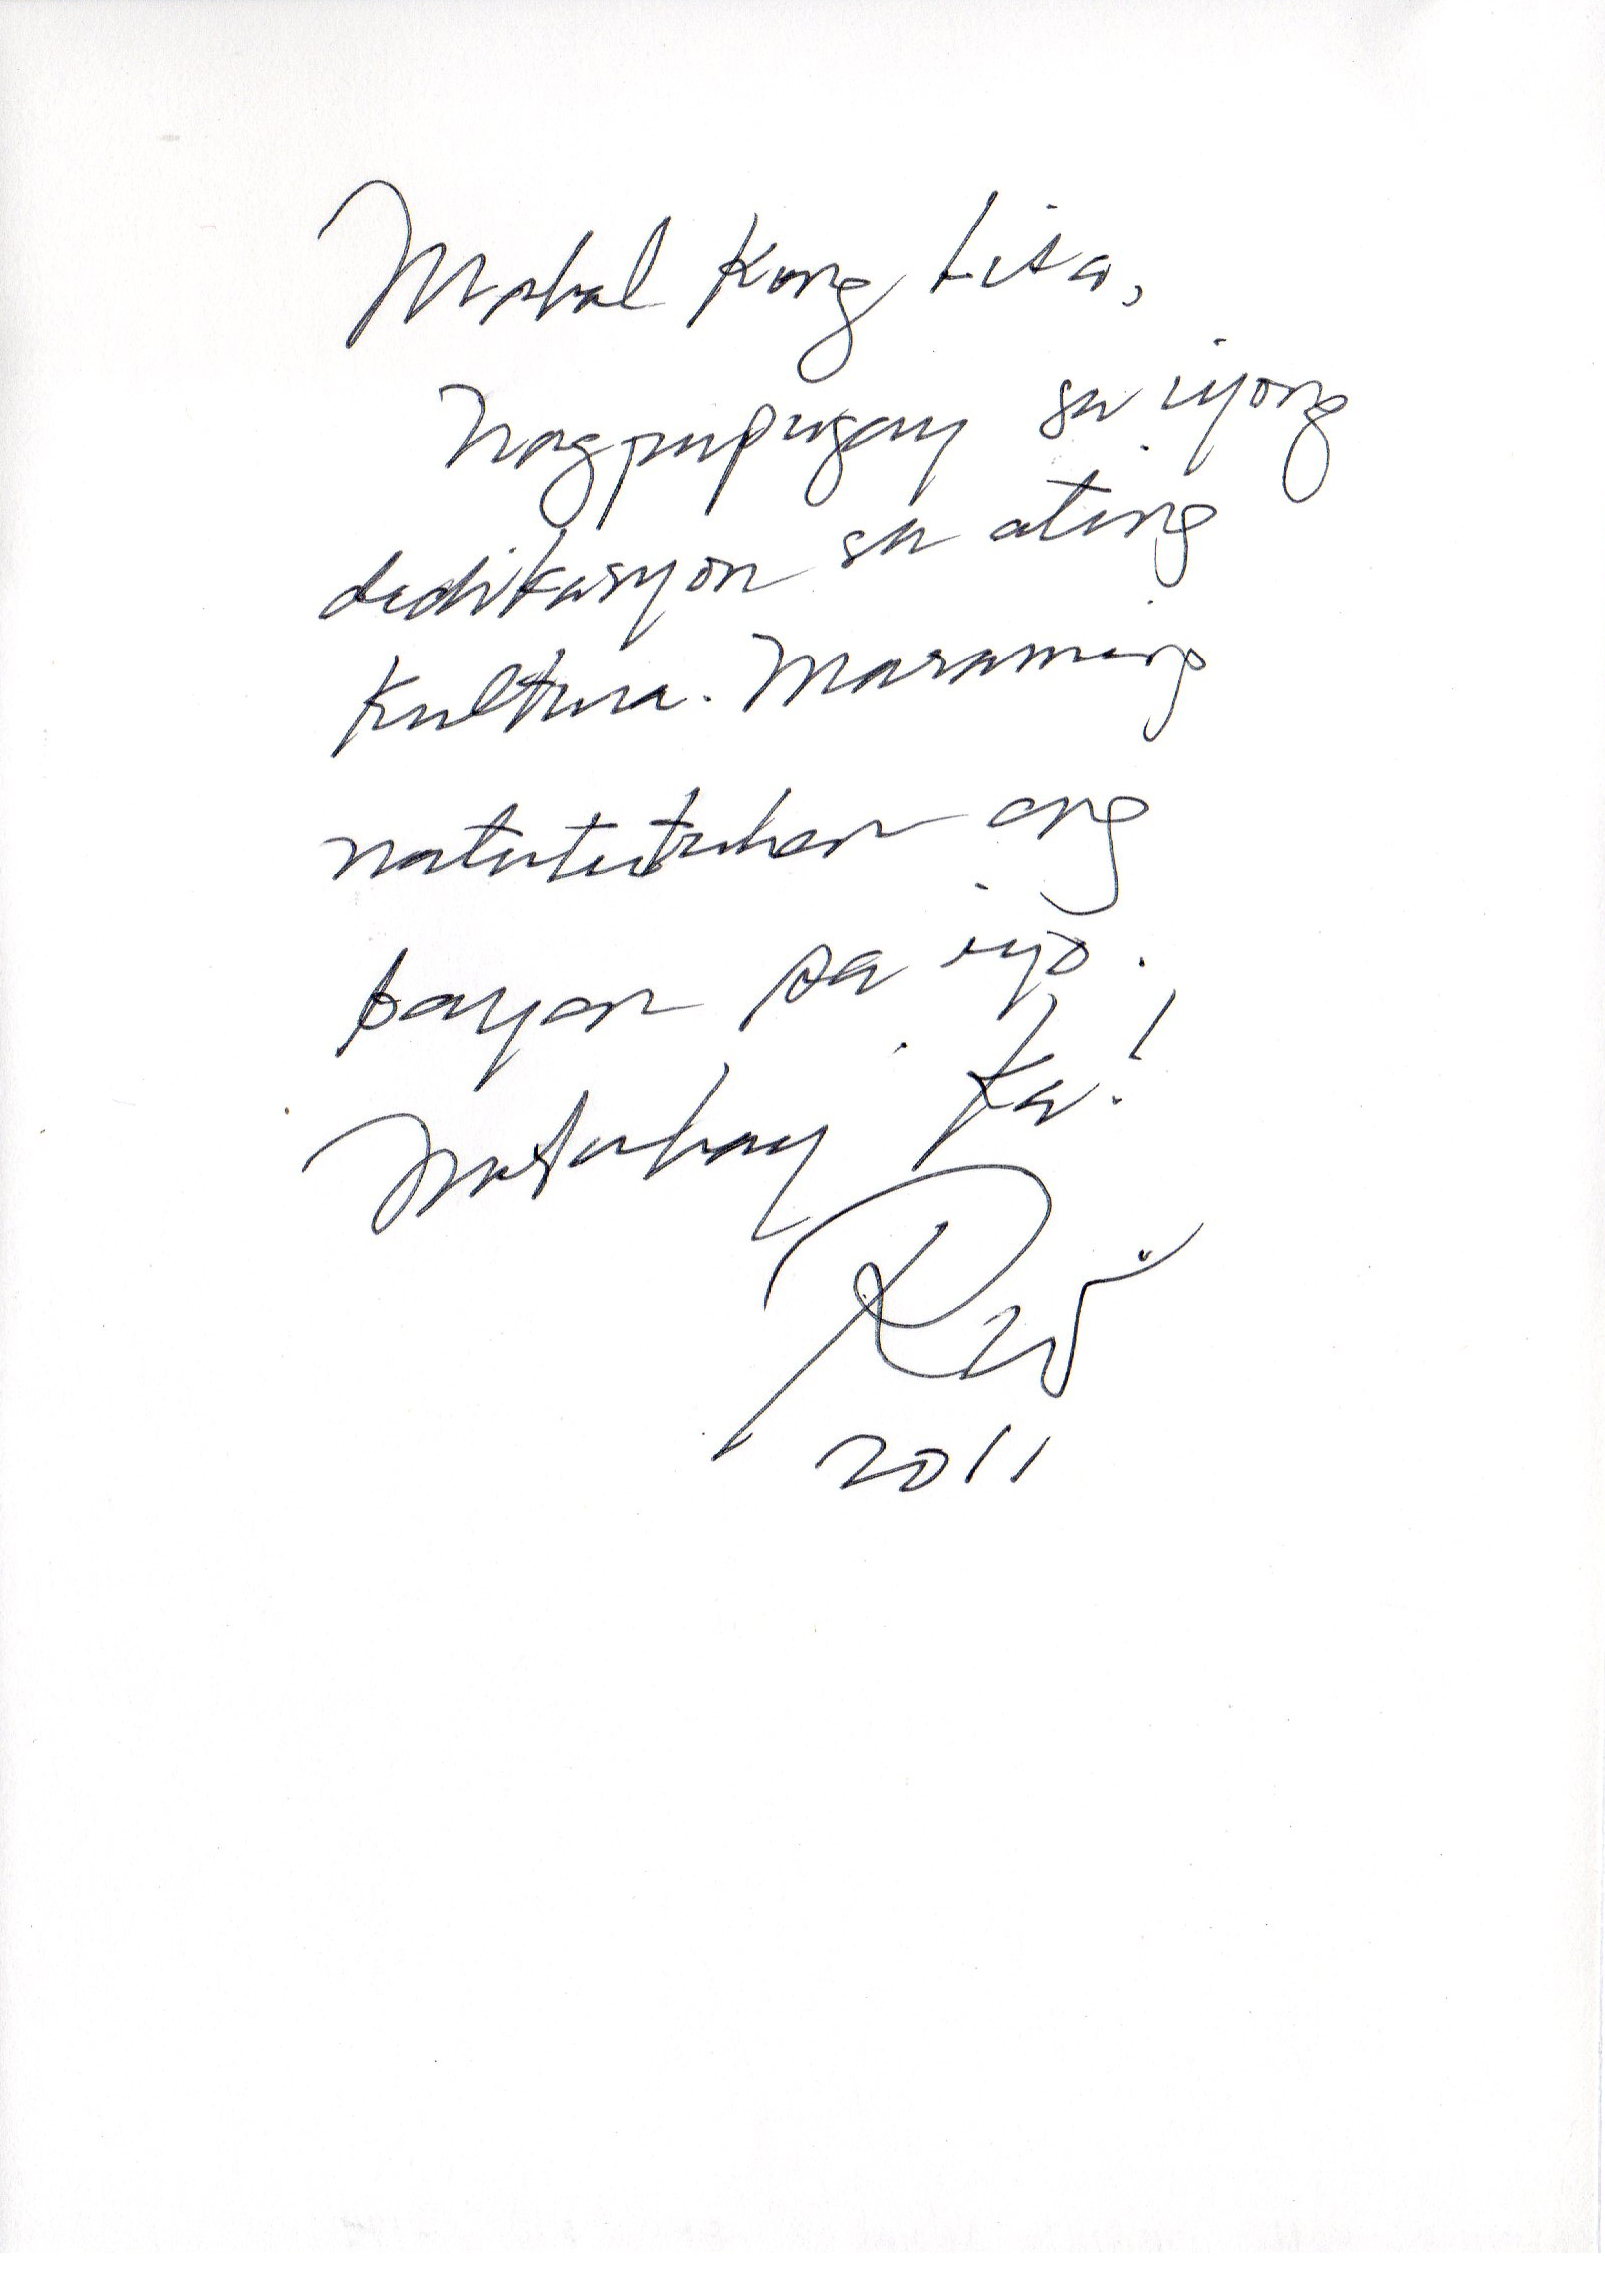 Mahal Kong Lita,
Nagpupugay sa iyong
dedikasyon sa ating
Kultura. Maraming
natututuhan ang
bayan sa iyo.
Mabuhay ka!
2011